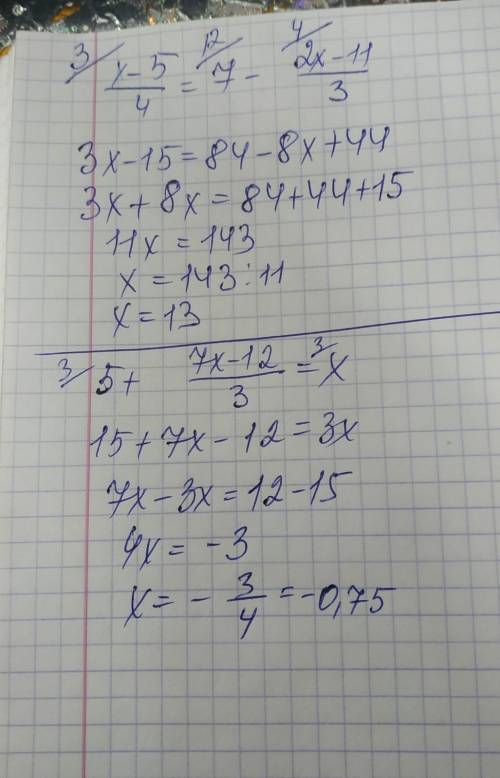 3/ x-5/4 = 12/ 7 - 4/ 2x-11/3
3x-15=84-8x+44
3x+8x=84+44+15
11x=143
x=143:11
x=13
3/ 5+ 7x-12/3 = 3/ x
15+7x-12=3x
7x-3x=12-15
4x=-3
x=-3/4=-0,75